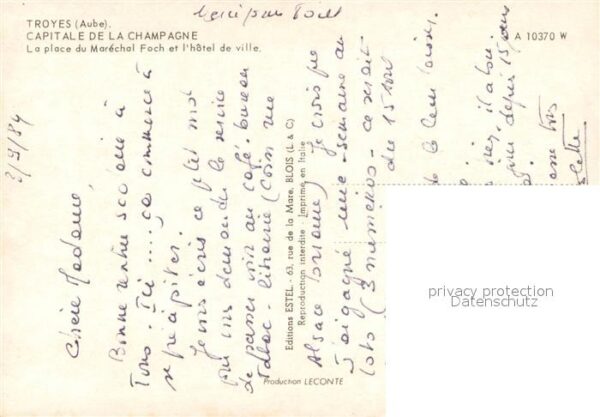 TROYES (Aube).
CAPITALE DE LA CHAMPAGNE
La place du Maréchal Foch et l'hôtel de ville.
A 10370 W
Merci pour tout
2/9/84
Chère Madame,
Bonne rentrée scolaire à
Tous. Ici .... ça commence à
se précipiter.
Je vous écris ce petit mot
pour vous demander le service
de passer voir au café-bureau
tabac-librairie (coin rue
Alsace Lorraine) Je crois que
j'ai gagné une semaine au
Loto (3 numéros - ce serait
du 15
de
depuis 15 jours
Editions ESTEL - 63, rue de la Mare, BLOIS (L. & C)
Reproduction interdite - Imprimé en Italie
Production LECONTE
privacy protection
Datenschutz